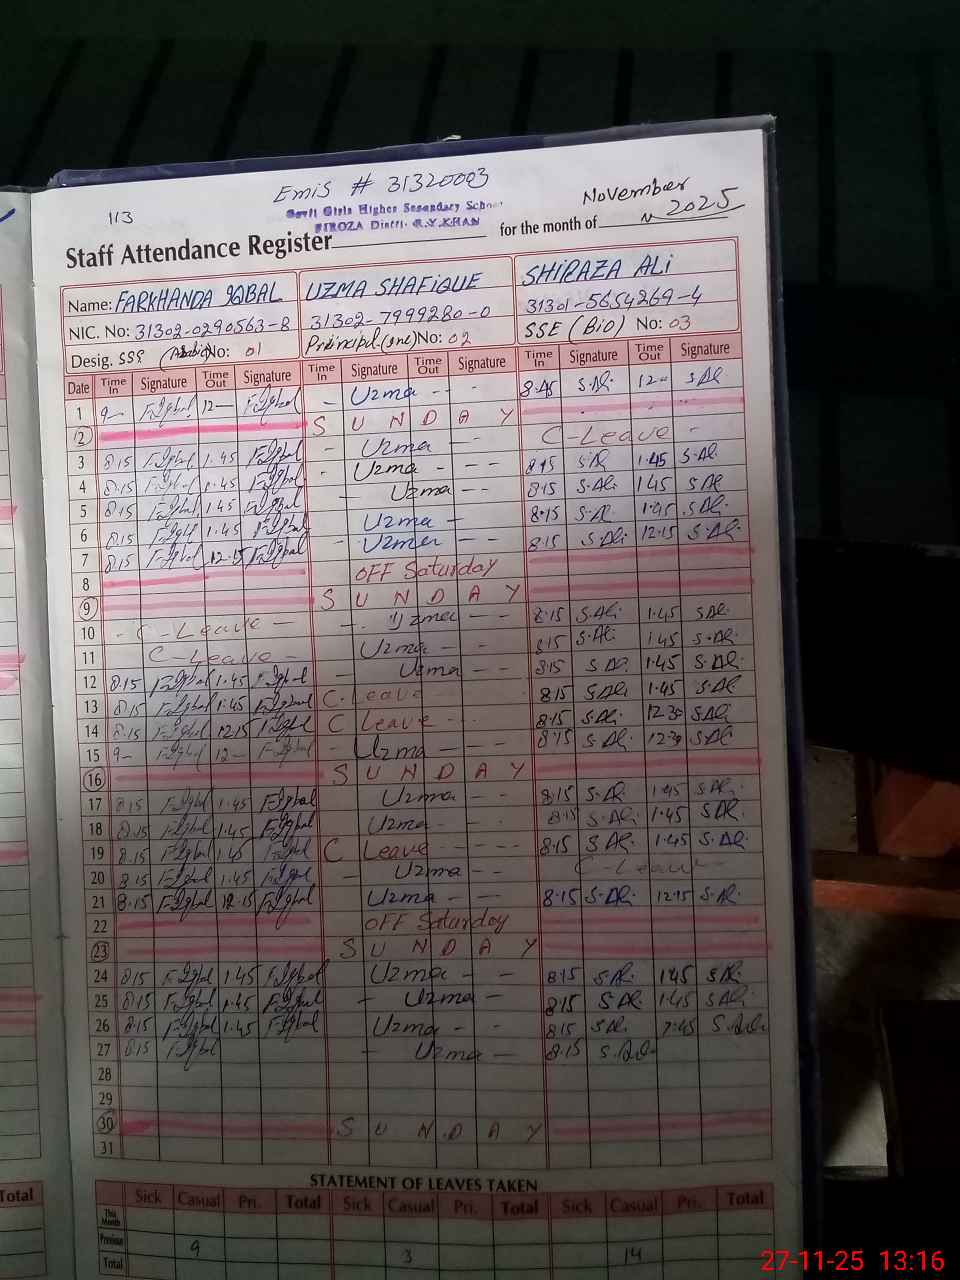 113
Emis # 31320003
Govt Girls Higher Secondary School
FIROZA Distt. R.Y.KHAN
Staff Attendance Register for the month of November 2025
Name: FARKHANDA IQBAL UZMA SHAFIQUE SHIRAZA ALI
NIC. No: 31302-0290563-8 31302-7999280-0 31301-5654269-4
Desig. No: 01 No: 02 SSE (Bio) No: 03
Date Time In Signature Time Out Signature Time In Signature Time Out Signature Time In Signature Time Out Signature
1 9- F.Iqbal 12- F.Iqbal - Uzma - - - 8.45 S.Ali 12- S.Ali
2 S U N D A Y
3 8.15 F.Iqbal 1.45 F.Iqbal - Uzma - - C-Leave -
4 8.15 F.Iqbal 1.45 F.Iqbal - Uzma - - - 8.15 S.Ali 1.45 S.Ali
5 8.15 F.Iqbal 1.45 F.Iqbal - Uzma - - 8.15 S.Ali 1.45 S.Ali
6 8.15 F.Iqbal 1.45 F.Iqbal Uzma - 8.15 S.Ali 1.45 S.Ali
7 8.15 F.Iqbal 12.15 F.Iqbal - Uzma - - 8.15 S.Ali 12.15 S.Ali
8 OFF Saturday
9 S U N D A Y
10 - C-Leave - - Uzma - - 8.15 S.Ali 1.45 S.Ali
11 C-Leave - Uzma - - 8.15 S.Ali 1.45 S.Ali
12 8.15 F.Iqbal 1.45 F.Iqbal - Uzma - - 8.15 S.Ali 1.45 S.Ali
13 8.15 F.Iqbal 1.45 F.Iqbal C.Leave 8.15 S.Ali 1.45 S.Ali
14 8.15 F.Iqbal 12.15 F.Iqbal C Leave - - - 8.15 S.Ali 12.30 S.Ali
15 9- F.Iqbal 12- F.Iqbal - Uzma - - - 8.15 S.Ali 12.30 S.Ali
16 S U N D A Y
17 8.15 F.Iqbal 1.45 F.Iqbal Uzma - - 8.15 S.Ali 1.45 S.Ali
18 8.15 F.Iqbal 1.45 F.Iqbal Uzma - - 8.15 S.Ali 1.45 S.Ali
19 8.15 F.Iqbal 1.45 F.Iqbal C Leave - - - - - 8.15 S.Ali 1.45 S.Ali
20 8.15 F.Iqbal 1.45 F.Iqbal - Uzma - - C-Leave -
21 8.15 F.Iqbal 12.15 F.Iqbal Uzma - - 8.15 S.Ali 12.15 S.Ali
22 OFF Saturday
23 S U N D A Y
24 8.15 F.Iqbal 1.45 F.Iqbal Uzma - - 8.15 S.Ali 1.45 S.Ali
25 8.15 F.Iqbal 1.45 F.Iqbal - Uzma - 8.15 S.Ali 1.45 S.Ali
26 8.15 F.Iqbal 1.45 F.Iqbal Uzma - - 8.15 S.Ali 1.45 S.Ali
27 8.15 F.Iqbal - Uzma - 8.15 S.Ali
28
29
30 S U N D A Y
31
STATEMENT OF LEAVES TAKEN
Sick Casual Pri. Total Sick Casual Pri. Total Sick Casual Pri. Total
This Month
Previous 9 3 14
Total
Total
27-11-25 13:16